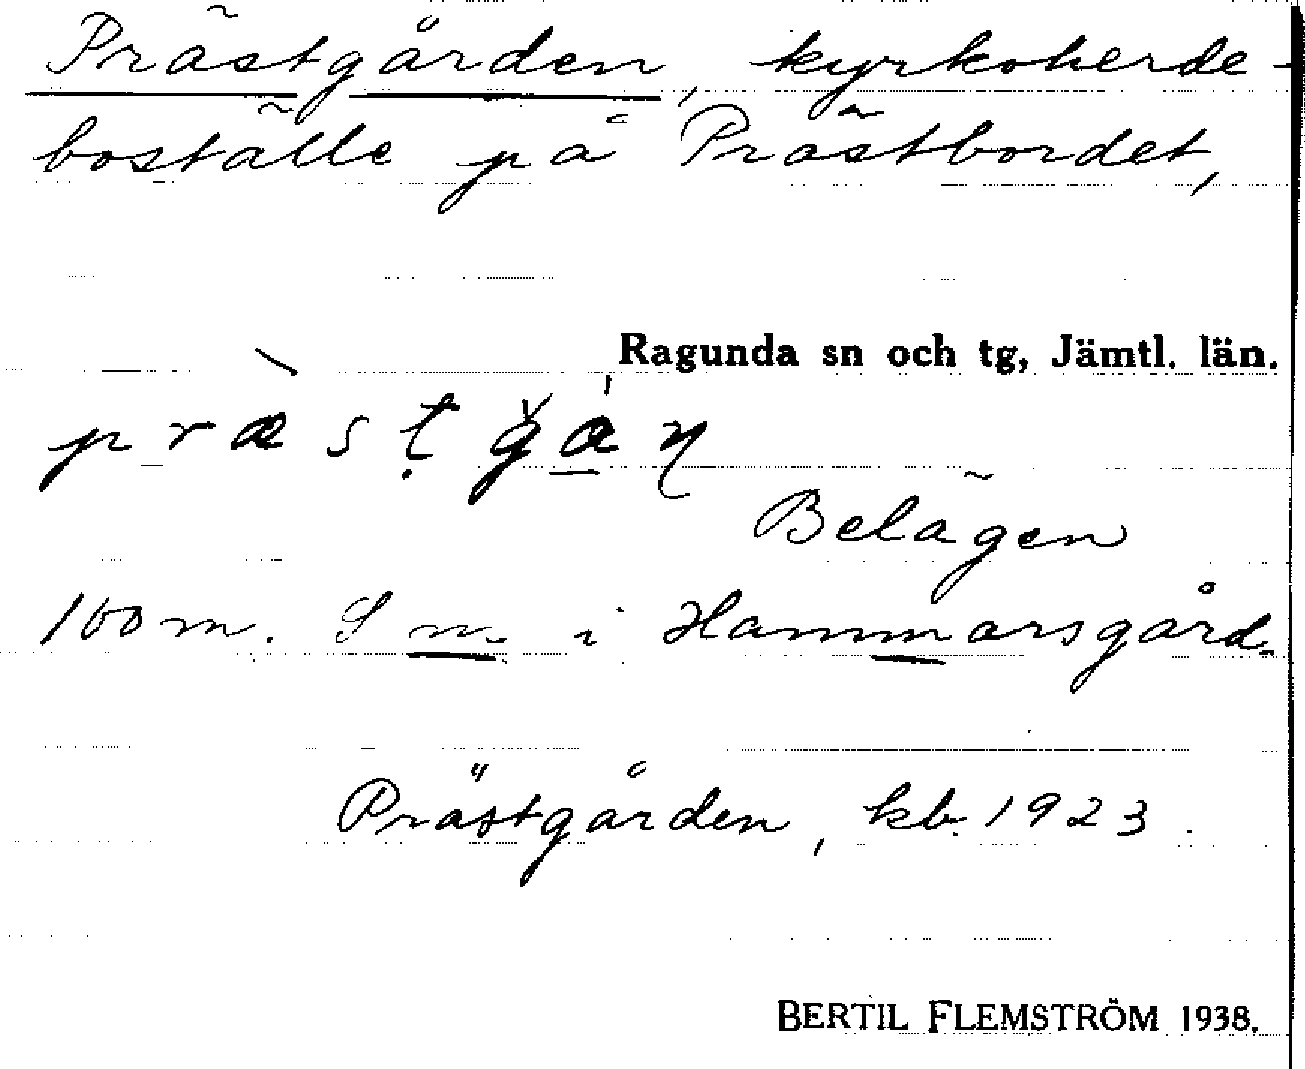 Prästgården, kyrkoherde-
boställe på Prästbordet,
Ragunda sn och tg, Jämtl. län.
Belägen
100 m. S m. i Hammarsgård.
Prästgården, kb. 1923.
BERTIL FLEMSTRÖM 1938.